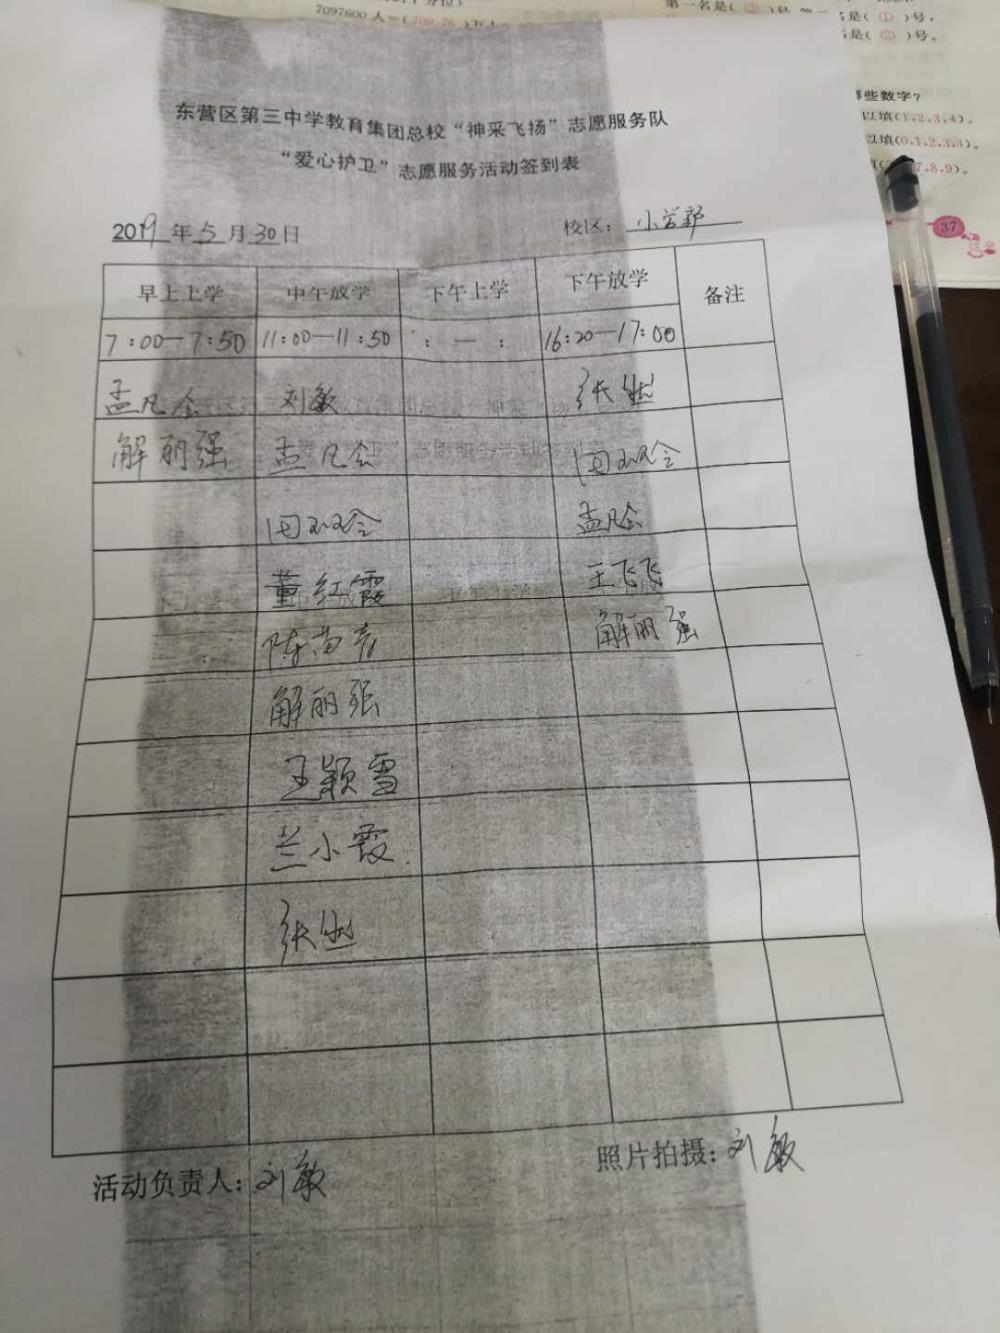 7097600人=(709.76)万人
第一名是(
)号,
是(①)号,
是(②)号。
哪些数字?
以填(1,2,3,4)。
以填(0,1,2,3,4)。
7,8,9)。
37
东营区第三中学教育集团总校“神采飞扬”志愿服务队
“爱心护卫”志愿服务活动签到表
2019年5月30日 校区：小学部
早上上学 中午放学 下午上学 下午放学 备注
7:00—7:50 11:00—11:50 :—: 16:20—17:00
孟凡会 刘敏 张
解丽强 孟凡会
孟凡会
董红霞 王飞飞
陈 解丽强
解丽强
王颖雪
兰小霞
张
活动负责人：刘敏 照片拍摄：刘敏